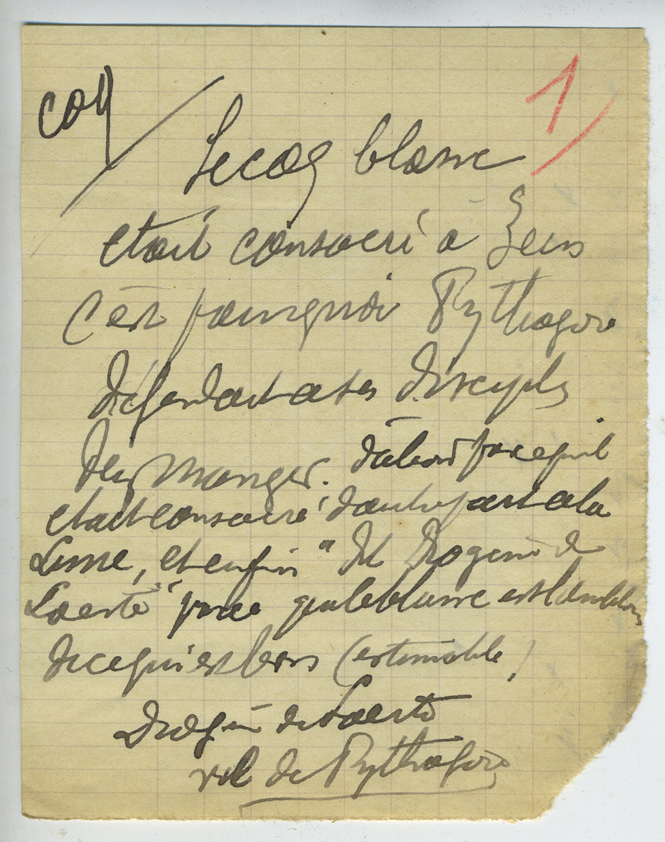 coq
1
Le coq blanc
était consacré à Zeus
c'est pourquoi Pythagore
défendait à ses disciples
d'en manger. d'abord parce qu'il
était consacré, d'autre part à la
Lune, et enfin "dit Diogène de
Laerte" parce que le blanc est l'emblème
de ce qui est bon (estimable)
Diogène de Laerte
vie de Pythagore